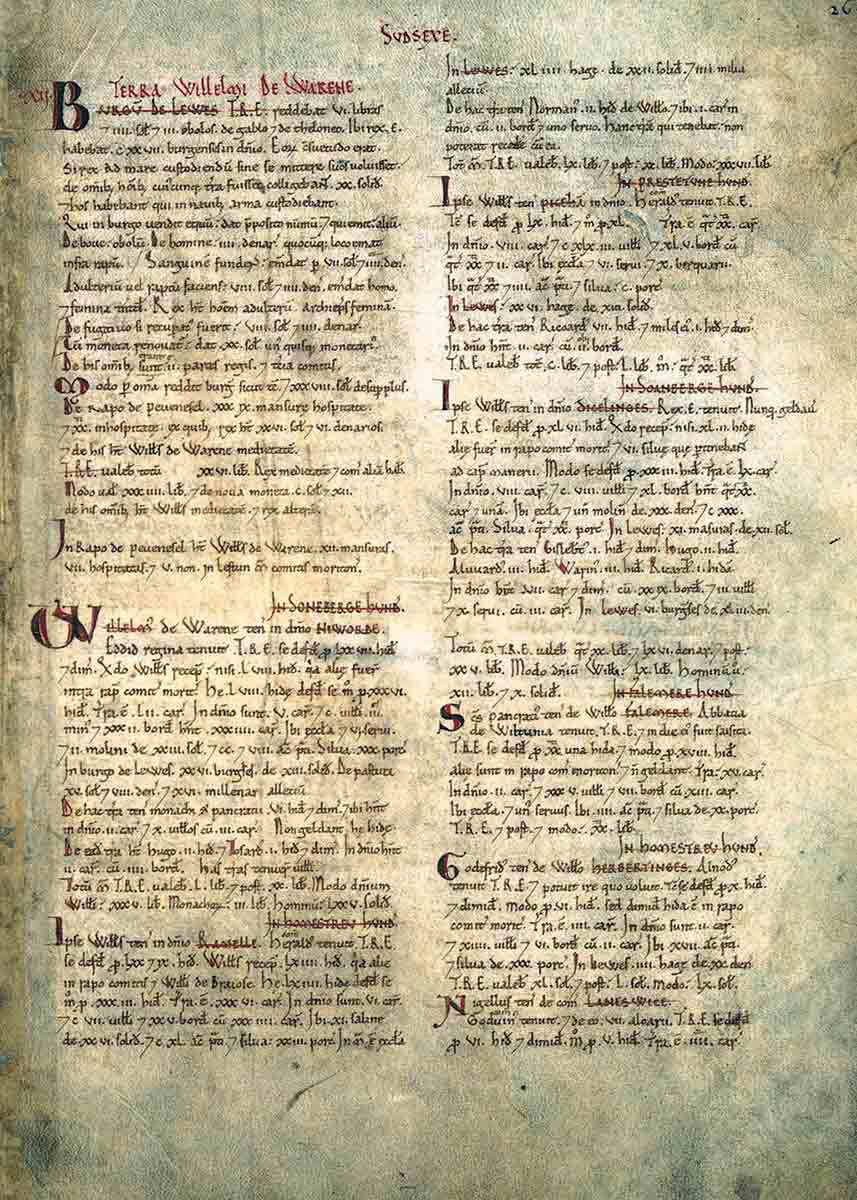 26
SUDSEXE.
.XII. TERRA WILLELMI DE WARENE.
BURGŪ DE LEWES T.R.E. reddebat VI. libras
7 IIII. sol 7 III. obolos. de gablo 7 de theloneo. Ibi rex .E.
habebat .CXXVII. burgenses in dñio. Eoꝝ c̄suetudo erat.
Si rex ad mare custodiendū sine se mittere suos voluisset.
de om̄ib hōib cuicunq; tr̄a fuisset, colligebant .XX. solid.
7 hos habebant qui in nauib arma custodiebant.
Qui in burgo vendit equū: dat p̄posito nūmū 7 qui emit: aliū.
De boue: obolū. De homine .IIII. denar. quocunq; loco emat
infra rapū. Sanguinē fundens: em̄dat p VII. sol 7 IIII. den.
Adulteriū vel raptū faciens: VIII. sol 7 IIII. den. em̄dat homo,
7 femina tantd. Rex ht hōem adulterū. Archiep̄s feminā.
De fugitiuo si recupat fuerit: VIII. sol 7 IIII. denar.
Cū moneta renouat: dat .XX. sol un̄quisq; monetari.
De his om̄ib sunt .II. partes regis. 7 tcia comitis.
Modo p om̄a reddit burg sicut tc̄ 7 XXXVIII. sol desup plus.
De Rapo de Peuenesel. XXXIX. mansuræ hospitatæ
7 XX. inhospitatæ. ex quib rex ht XXVI. sol 7 VI. denarios.
7 de his ht Wills de Warene medietatē.
T.R.E. valeb totū XXVI. lib. Rex medietatē 7 com aliā hab.
Modo ual XXXIIII. lib. 7 de noua moneta C. sol 7 XII.
De his om̄ib ht Wills medietatē. 7 rex alterā.
In Rapo de Peuenesel ht Wills de Warene .XII. mansuras.
VII. hospitatas. 7 V. non. in Lestun m̄ comitis moriton.
IN SONEBERGE HUND.
WILLELM de Warene ten in dñio NIWORDE.
Eddid regina tenuit. T.R.E. se defd p LXXVII. hid
7 dim. Qdo Wills recep: nisi LVIII. hid. q̄a aliæ fuer
intra rap comit morit. He LVIII. hidæ defd se m̄ p XXXVI.
hid. Tr̄a .ē. LII. car. In dñio sunt .V. car. 7 C. uilli .III.
min 7 XXXII. bord hnt .XXXIIII. car. Ibi æccla 7 VI. serui.
7 II. molini de XXIII. sol. 7 CC. 7 VIII. ac̄ p̄ti. Silua .XXX. porc.
In burgo de Lewes .XXVI. burgses de XIII. solid. De pastura
XV. sol 7 VIII. den. 7 XVI. millenar alleciū.
De hac tra ten monachi S pancratii VI. hid 7 dim. 7 ibi hnt
in dñio .II. car. 7 X. uillos cū .III. car. Non geldant he hidæ.
De ead tra ht Hugo .II. hid. 7 Tosard .I. hid 7 dim. In dñio hnt
.II. car. cū .IIII. bord. Has tras tenuer uilli.
Totū m̄ T.R.E. ualeb .L. lib. 7 post .XX. lib. Modo dñium
Willi: XXXV. lib. Monachoꝝ: III. lib. Hominū: LXXV. solid.
IN HOMESTREU HUND.
Ipse Wills ten in dñio RAMELLE. Herald tenuit. T.R.E.
se defd p LXX 7 IX. hid. Wills recep LXIIII. hid. q̄a aliæ
in rapo comitis 7 Willi de Braiose. He LXIIII. hidæ defd se
m̄ p XXXIII. hid. Tr̄a .ē. XXXVI. car. In dñio sunt .VI. car.
7 C VII. uilli 7 XXV. bord cū .XXXIIII. car. Ibi XI. salinæ
de XXVI. solid. 7 C XL. ac̄ p̄ti. 7 silua: XXIII. porc. In m̄ .ē æccla
In LEWES: XLIIII. hagæ de XXII. solid 7 IIII. milia
alleciū.
De hac tra ten Norman .II. hid de Willo. 7 ibi .I. car in
dñio. cū .II. bord 7 uno seruo. Hanc tra qui tenebat non
poterat recede cū ea.
Tot m̄ T.R.E. valeb LX. lib. 7 post: XL. lib. Modo: XXXVII. lib.
IN PRESTETUNE HUND.
Ipse Wills ten PICEHĀ in dñio. Herald tenuit. T.R.E.
Tc̄ se defd p LX. hid. 7 m̄ p XL. Tr̄a .ē q̄t XX. car.
In dñio .VIII. car. 7 C XLIX. III. uilli 7 XLV. bord cū
q̄t XX 7 II. car. Ibi æccla 7 VI. serui. 7 X. berquarii.
Ibi q̄t XX 7 IIII. ac̄ p̄ti. 7 silua: C. porc.
In LEWES: XXVI. hagæ de XIII. solid.
De hac tra ten Ricoard VII. hid. 7 milites ei .I. hid 7 dim.
In dñio hnt .II. car cū .II. bord.
T.R.E. valeb tot C. lib. 7 post L. lib. m̄: q̄t XX. lib.
IN SOANEBERGE HUND.
Ipse Wills ten in dñio DICELINGES. Rex .E. tenuit. Nunq geldau.
T.R.E. se defd p XLVI. hid. Qdo recep: nisi XLII. hidæ.
aliæ fuer in rapo comit moriton. 7 VI. siluæ quæ ptinebant
ad cap manerii. Modo se defd p XXXIII. hid. Tr̄a .ē. LX. car.
In dñio .VIII. car. 7 C. VIII. uilli 7 XL. bord hnt q̄t XX.
car 7 unā. Ibi æccla 7 un molin de XXX. den. 7 C XXX.
ac̄ p̄ti. Silua: q̄t XX. porc. In Lewes: XI. masuras. de XII. sol.
De hac tra ten Gislebt .I. hid 7 dim. Hugo .II. hid.
Aluuard .III. hid. Warin .III. hid. Ricard .I. hida.
In dñio hnt .VII. car 7 dim. cū XXIX. bord. 7 III. uilli
7 X. serui cū .III. car. In Lewes .VI. burgses de XLIII. den.
Totū m̄ T.R.E. valeb q̄t XX. lib. 7 LXVI. denar. 7 post:
XXV. lib. Modo dñiū Willi: LX. lib. Hominū u:
XII. lib. 7 X. solid. IN FALEMERE HUND.
SCS pancratius ten de Willo FALEMERE. Abbatia
de Wiltunia tenuit. T.R.E. 7 in die ei fuit saisita.
T.R.E. se defd p XX. una hida. 7 modo p XVIII. hid.
aliæ sunt in rapo com moriton. 7 n̄ geldant. Tr̄a: XV. car.
In dñio .II. car. 7 XXXV. uilli 7 VII. bord cū XIII. car.
Ibi æccla. 7 un seruus. Ibi .IIII. ac̄ p̄ti. 7 silua de XX. porc.
T.R.E. 7 post. 7 modo: XX. lib.
IN HOMESTREU HUND.
Godefrid ten de Willo HERBERTINGES. Alnod
tenuit T.R.E. 7 potuit ire quo uoluit. Tc̄ se defd p X. hid.
7 dimid. Modo p VI. hid. sed dimid hida .ē in rapo
comit morit. Tr̄a .ē. IIII. car. In dñio sunt .II. car.
7 XIIII. uilli 7 VI. bord cū .II. car. Ibi XVII. ac̄ p̄ti.
7 silua de XXX. porc. In Lewes .IIII. hagæ de XX. den.
T.R.E. valeb XL. sol. 7 post: L. sol. Modo: LX. sol.
Nigellus ten de com LANESWICE.
Goduin tenuit. 7 de eo VII. aloarii. T.R.E. se defd
p VI. hid 7 dimid. M p V. hid. Tr̄a .ē. IIII. car.